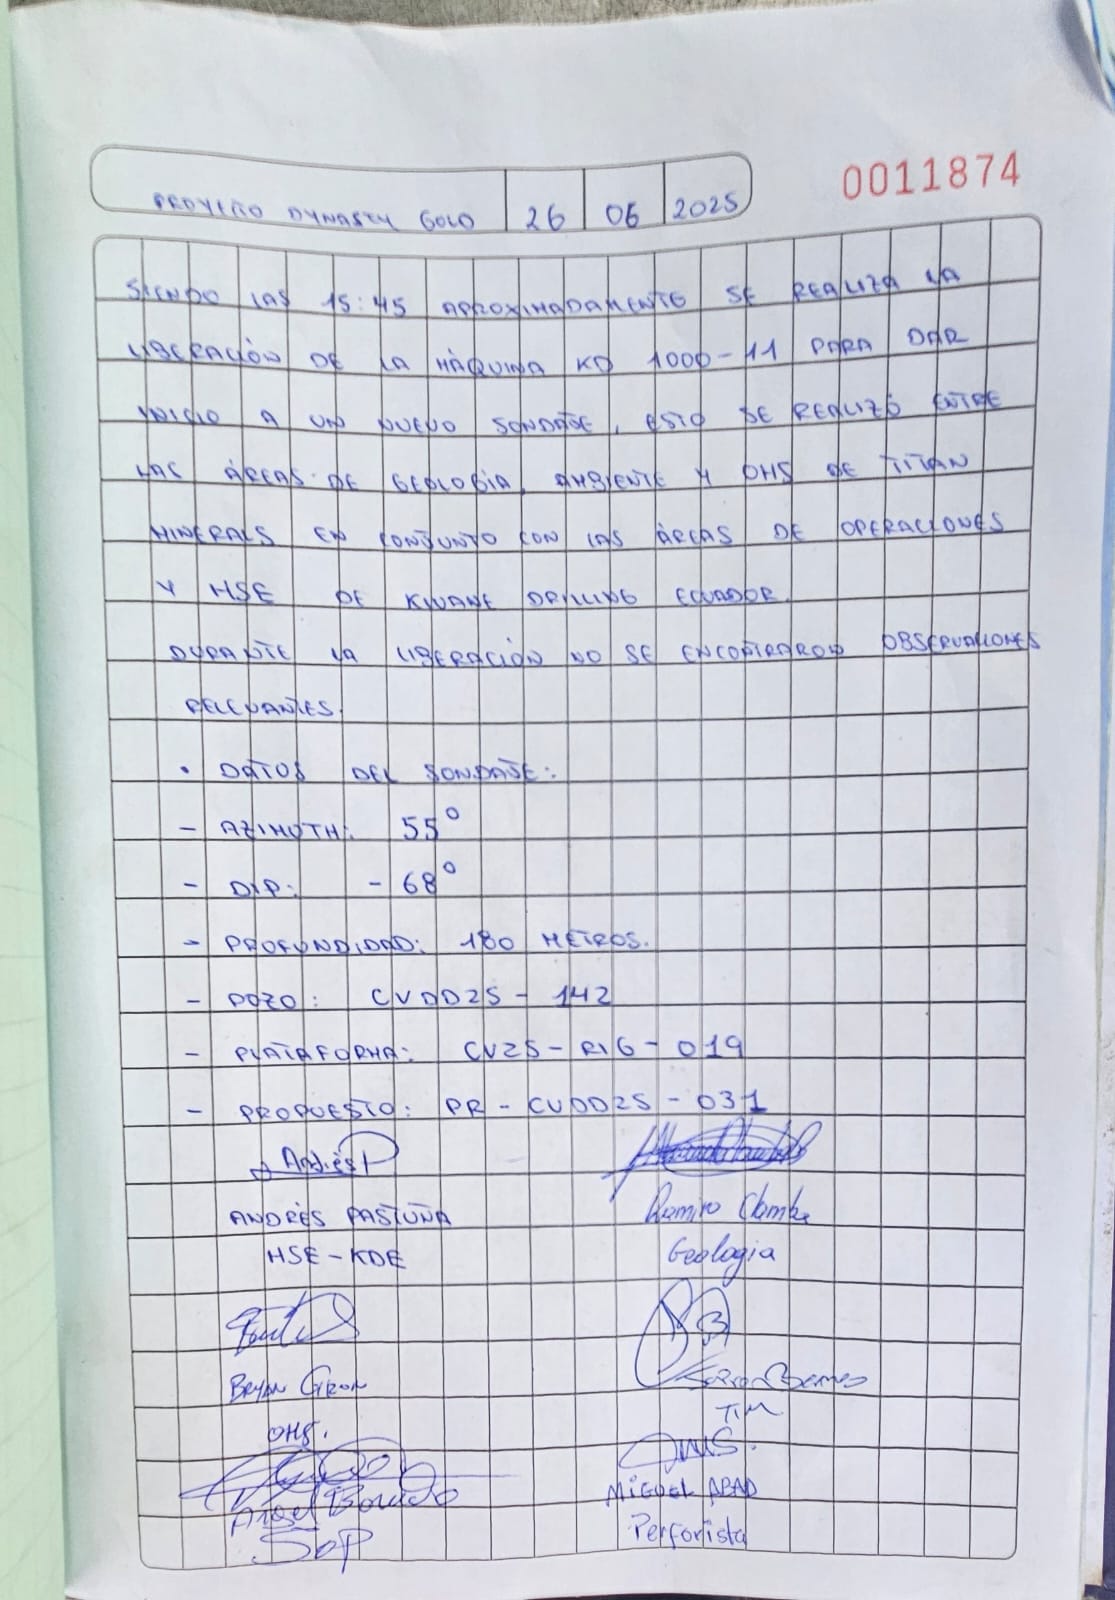 0011874
PROYECTO DYNASTY GOLD 26 06 2025
SIENDO LAS 15:45 APROXIMADAMENTE SE REALIZA LA
LIBERACIÓN DE LA MÁQUINA KD 1000-11 PARA DAR
INICIO A UN NUEVO SONDAJE, ESTO SE REALIZÓ ENTRE
LAS ÁREAS DE GEOLOGÍA, AMBIENTE Y OHS DE TITAN
MINERALS EN CONJUNTO CON LAS ÁREAS DE OPERACIONES
Y HSE DE KLUANE DRILLING ECUADOR.
DURANTE LA LIBERACIÓN NO SE ENCONTRARON OBSERVACIONES
RELEVANTES.
• DATOS DEL SONDAJE:
- AZIMUTH: 55°
- DIP: -68°
- PROFUNDIDAD: 180 METROS.
- POZO: CVDD25-142
- PLATAFORMA: CV25-RIG-019
- PROPUESTO: PR-CVDD25-031
AndrésP
ANDRÉS PASTUÑA Ramiro
HSE-KDE Geologia
Bryan Giron
OHS. TIM
Angel MIGUEL ABAD
SOP Perforista